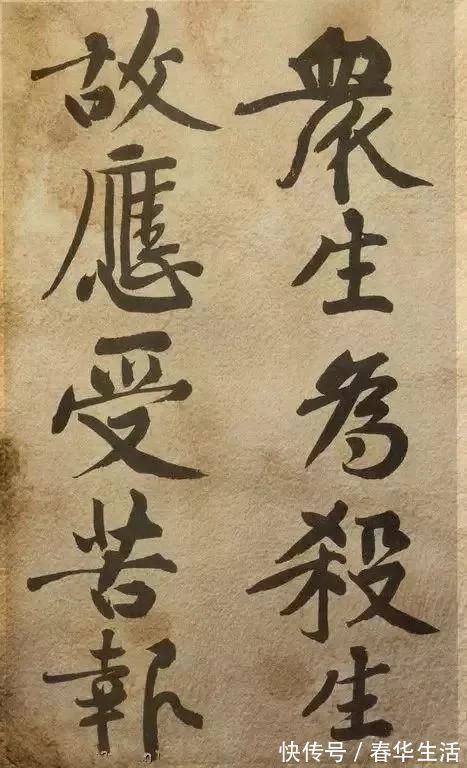 眾生為殺生
故應受苦報
快传号/春华生活